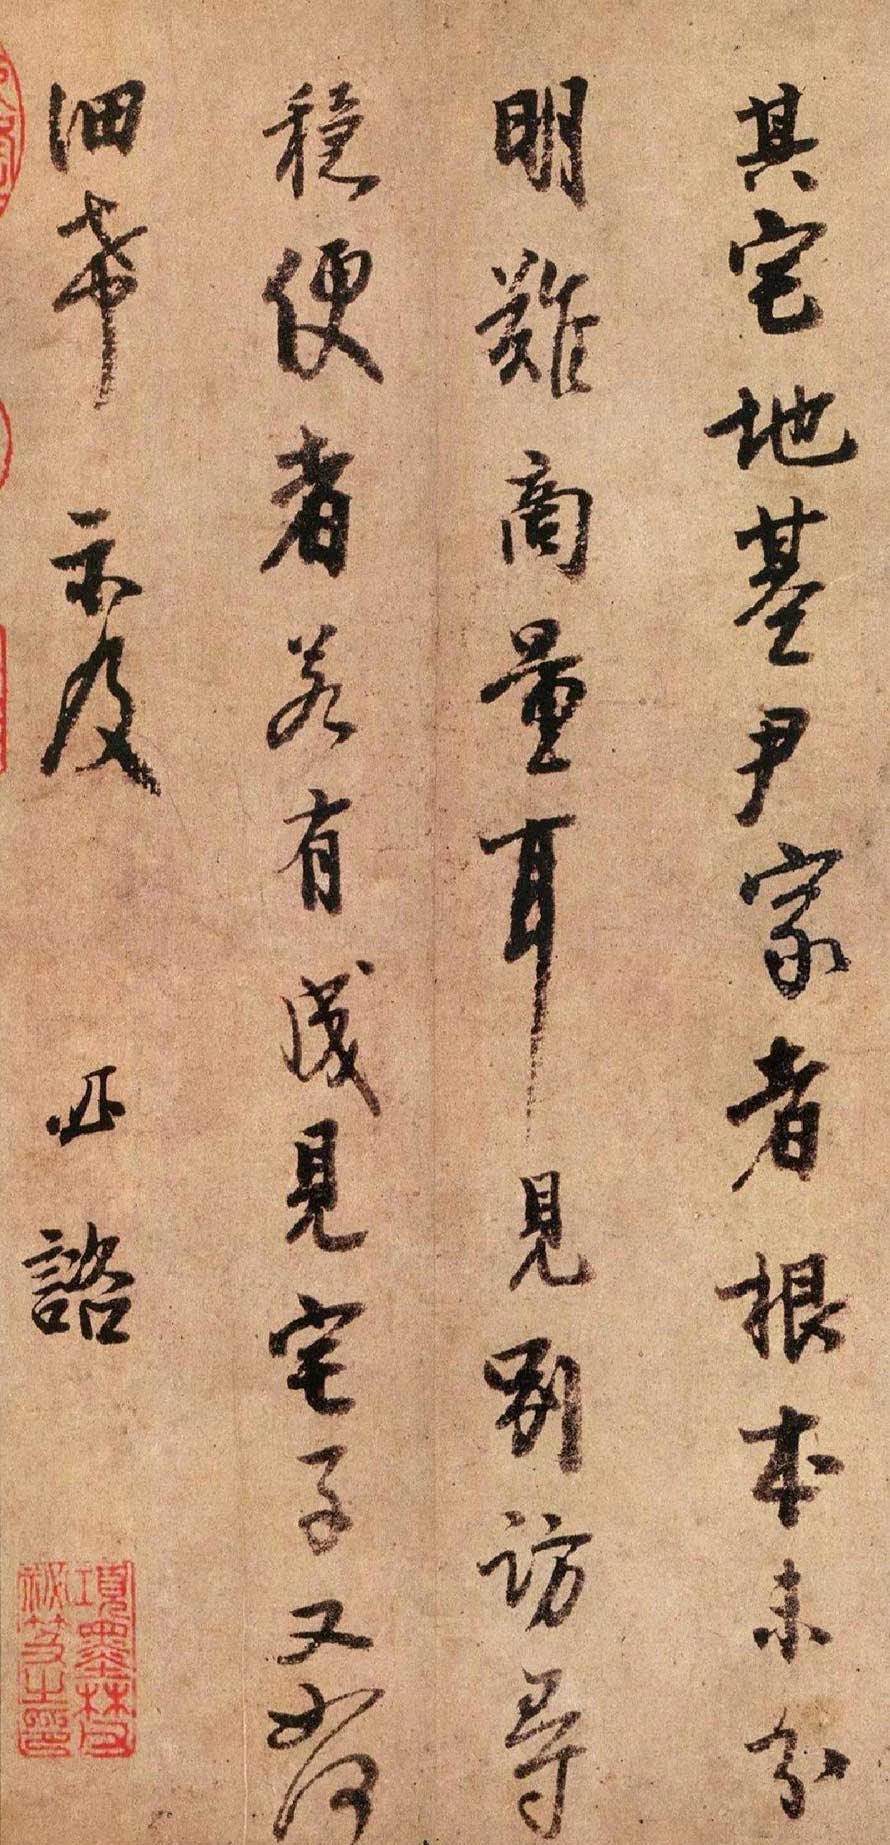 其宅地基尹家者根本未分
明難商量耳見別訪尋
穩便者若有成見宅子又如何
細希示及必諮
項墨林父
祕笈之印